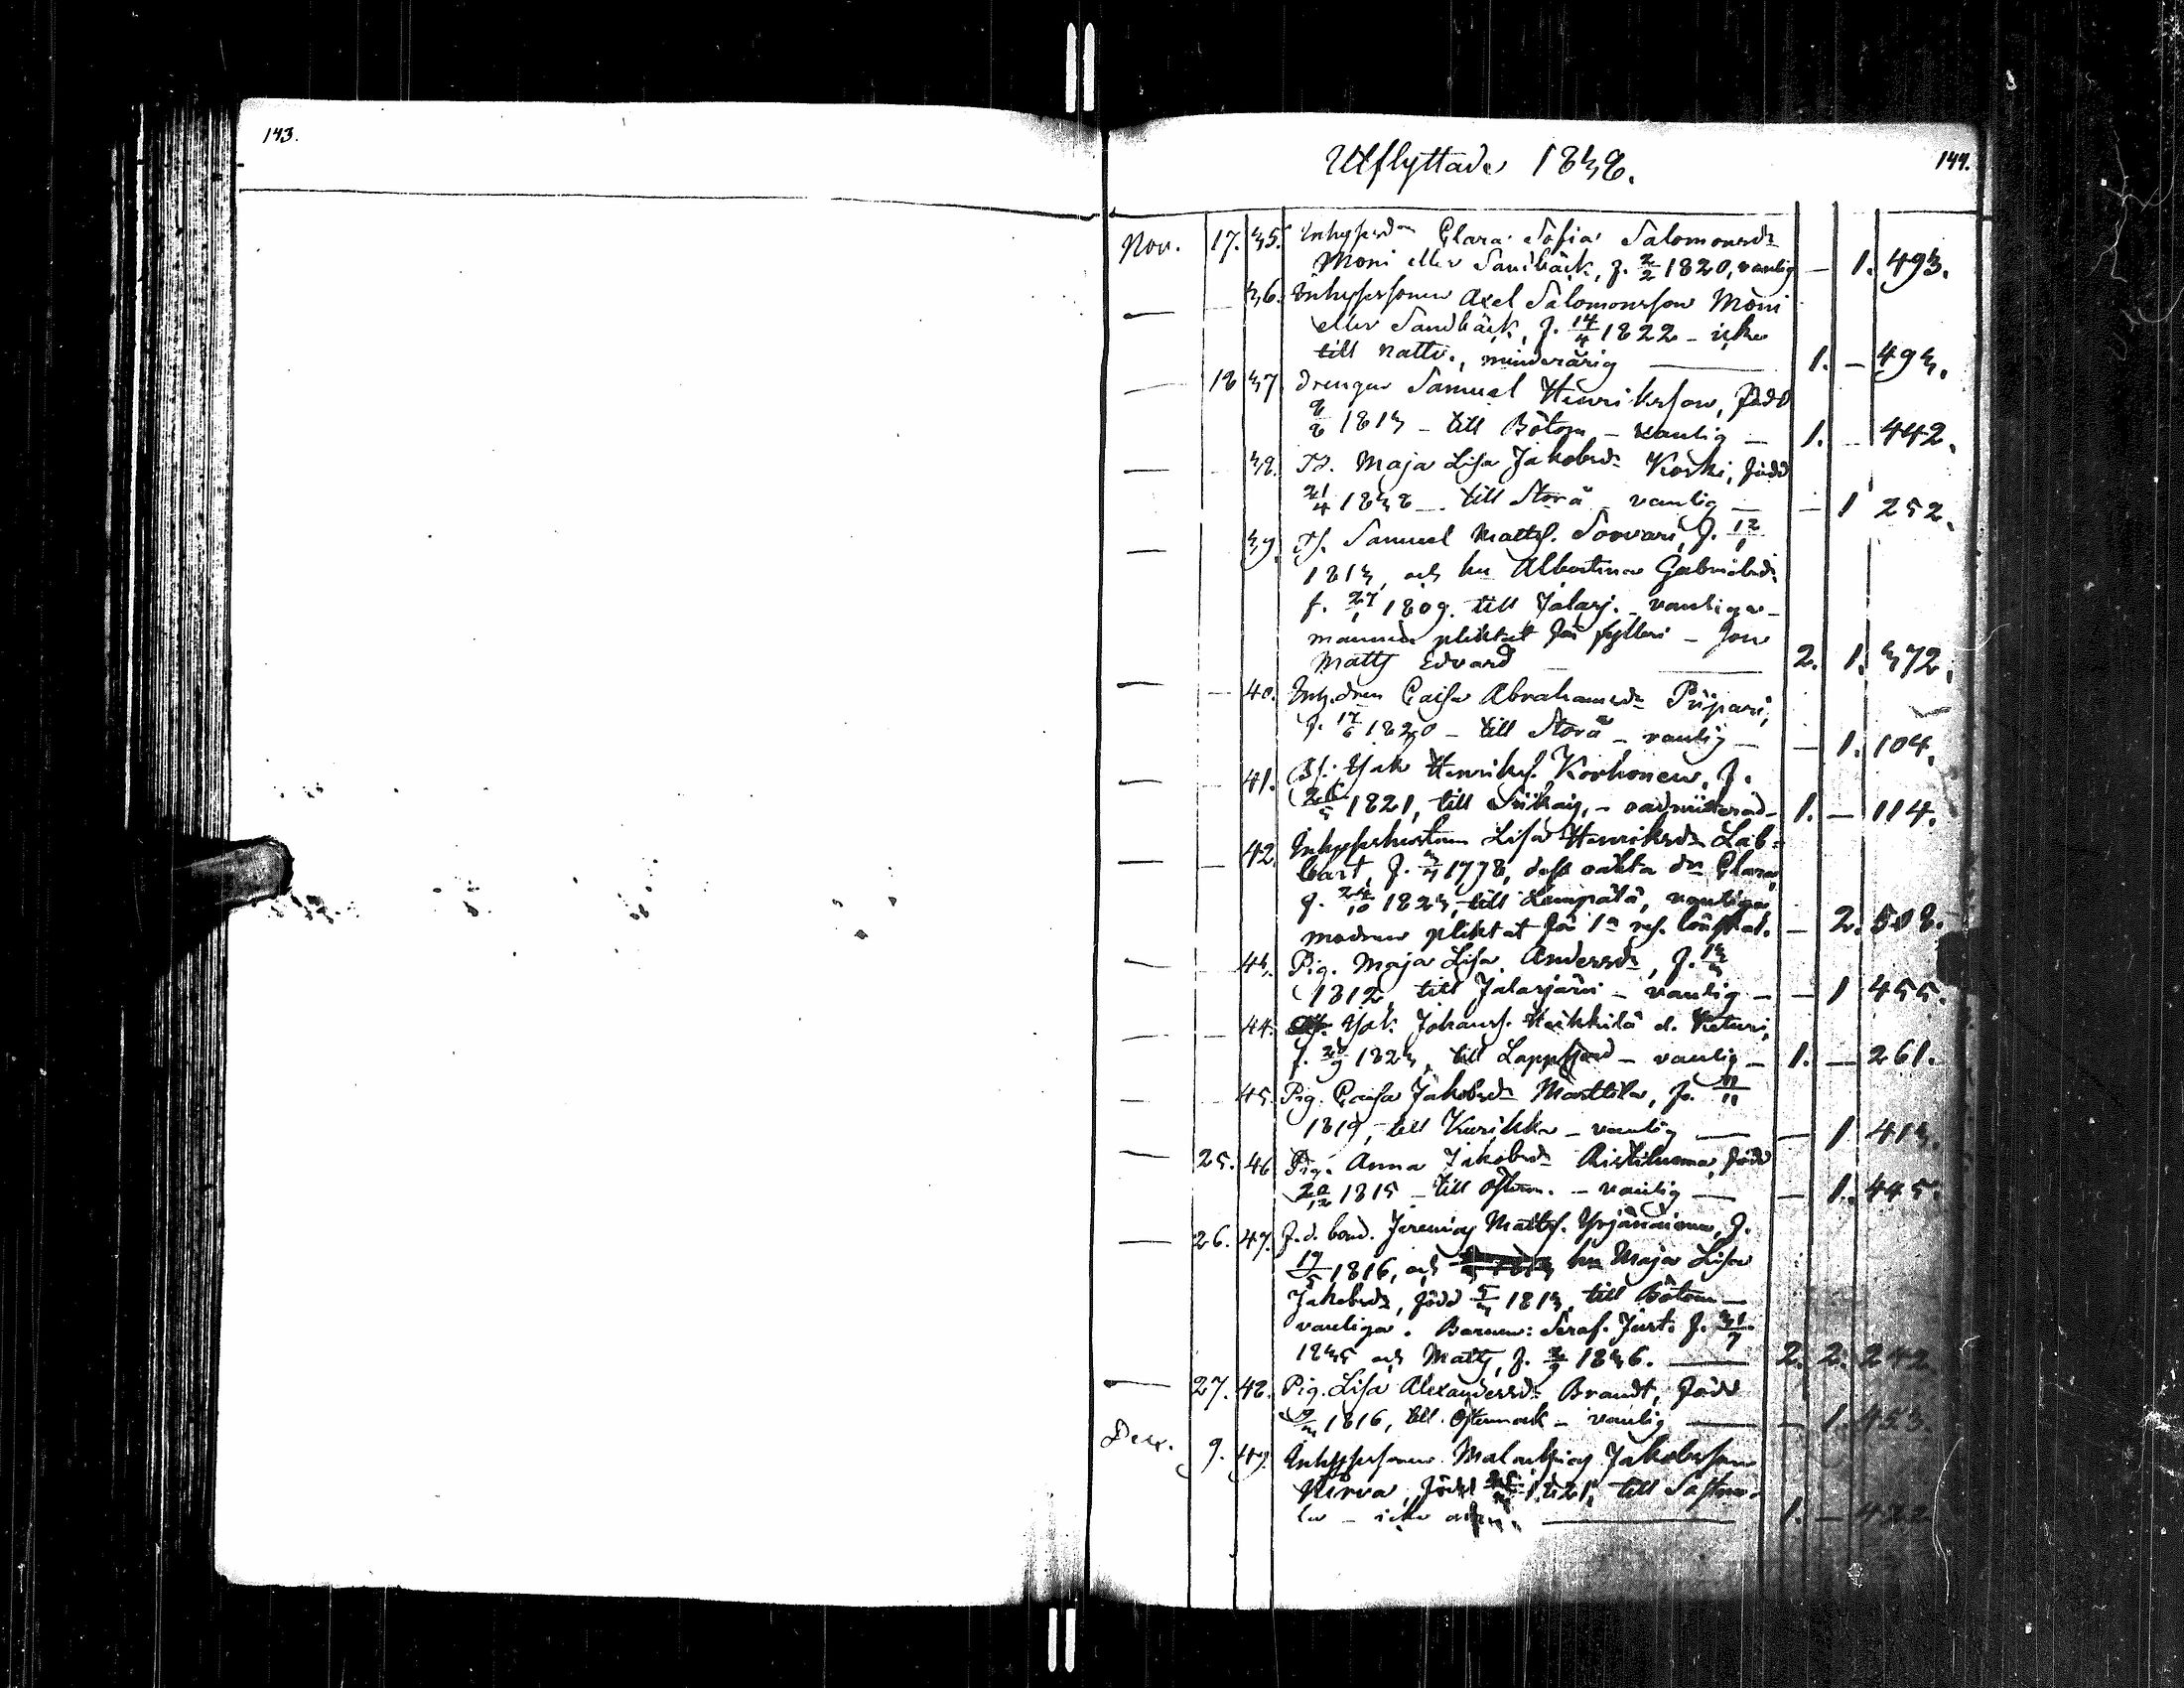 143.
Utflyttade 1838.
144.
Nov. 17. 35. Inhysesdn Clara Sofia Salomonsdr
Moni eller Sandbäck, f. 2/2 1820, vanlig — 1. 493.
— — 36. Inhysessonen Axel Salomonsson Moni
eller Sandbäck, f. 14/4 1822 - icke
till nattv., minderårig — 1. — 493.
— 18 37. Drengen Samuel Henriksson, född
8/8 1813 - till Bötom - vanlig — 1. — 442.
— — 38. Maja Lisa Jakobsdr Koski, född
till Storå - vanlig — — 1 252.
— 39. Samuel Matts. Sorvari, f. 12/1
1813, och hu Albertina Gabrielsdr
f. 27/1 1809. till Jalasj. - vanliga -
mannen pliktat för fylleri - Son
Matts Edvard — 2. 1. 372.
— — 40. Inh.dren Caisa Abrahamsdr Piipari,
f. 17/6 1820 - till Storå - vanlig — — 1. 104.
— — 41. Isak Henriks. Korhonen, f.
1821, till Siikaj. - oadmitterad - 1. — 114.
— — 42. Inhyseshustrun Lisa Henriksdr Lab-
bart, f. 1778, dess oäkta dr Clara,
f. 24/10 1823, till Lempälä, vanliga
modren pliktat för 1a res. lönskal. — 2. 508.
— 43. Pig. Maja Lisa Andersdr, f. 13/3
1812, till Jalasjärvi - vanlig — — 1 455.
— — 44. Isak Johans. Heikkilä el. Keturi,
f. 1823, till Lappfjerd - vanlig — 1. — 261.
— 45. Pig. Caisa Jakobsdr Marttila, f.
1819, till Kurikka - vanlig — — 1 413.
— 25. 46 Pig. Anna Jakobsdr Ristiluoma, född
20/12 1815 - till Österm. - vanlig — — 1. 445.
— 26. 47. F.d. bond. Jeremias Matts. Yrjänäinen, f.
17/5 1816, och hu Maja Lisa
Jakobsdr, född 5/3 1813, till Bötom —
vanliga. Barnen: Seraf. Just. f. 31/7
1835 och Matts, f. 1836. — 2. 2. 242.
— 27. 48. Pig. Lisa Alexandersdr Brandt, född
1816, till Östermark - vanlig — — 1. 453.
Dec. 9. 49. Inhysessonen Malachias Jakobsson
Kirva, född 1821, till Sastmo-
la - icke — 1. — 422